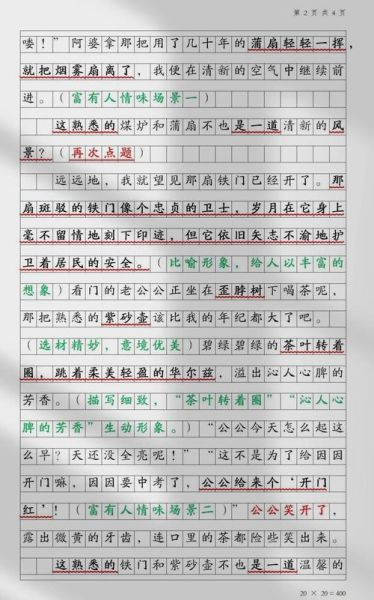 第 2 页 共 4 页
喽！”阿婆拿那把用了几十年的蒲扇轻轻一挥，
就把烟雾扇离了，我便在清新的空气中继续前
进。（富有人情味场景一）
这熟悉的煤炉和蒲扇不也是一道清新的风
景？（再次点题）
远远地，我就望见那扇铁门已经开了。那
扇斑驳的铁门像个忠贞的卫士，岁月在它身上
毫不留情地刻下印迹，但它依旧矢志不渝地护
卫着居民的安全。（比喻形象，给人以丰富的
想象）看门的老公公正坐在歪脖树下喝茶呢，
那把熟悉的紫砂壶该比我的年纪都大了吧。
（选材精妙，意境优美）碧绿碧绿的茶叶转着
圈，跳着柔美轻盈的华尔兹，溢出沁人心脾的
芳香。（描写细致，“茶叶转着圈”“沁人心
脾的芳香”生动形象。）“公公今天怎么起这
么早？天还没全亮呢！”“这不是为了给囡囡
开门嘛，囡囡要中考了，公公给来个‘开门
红’！（富有人情味场景二）”公公笑开了，
露出微黄的牙齿，连口里的茶都险些笑出来。
这熟悉的铁门和紫砂壶不也是一道温馨的
20 × 20 = 400